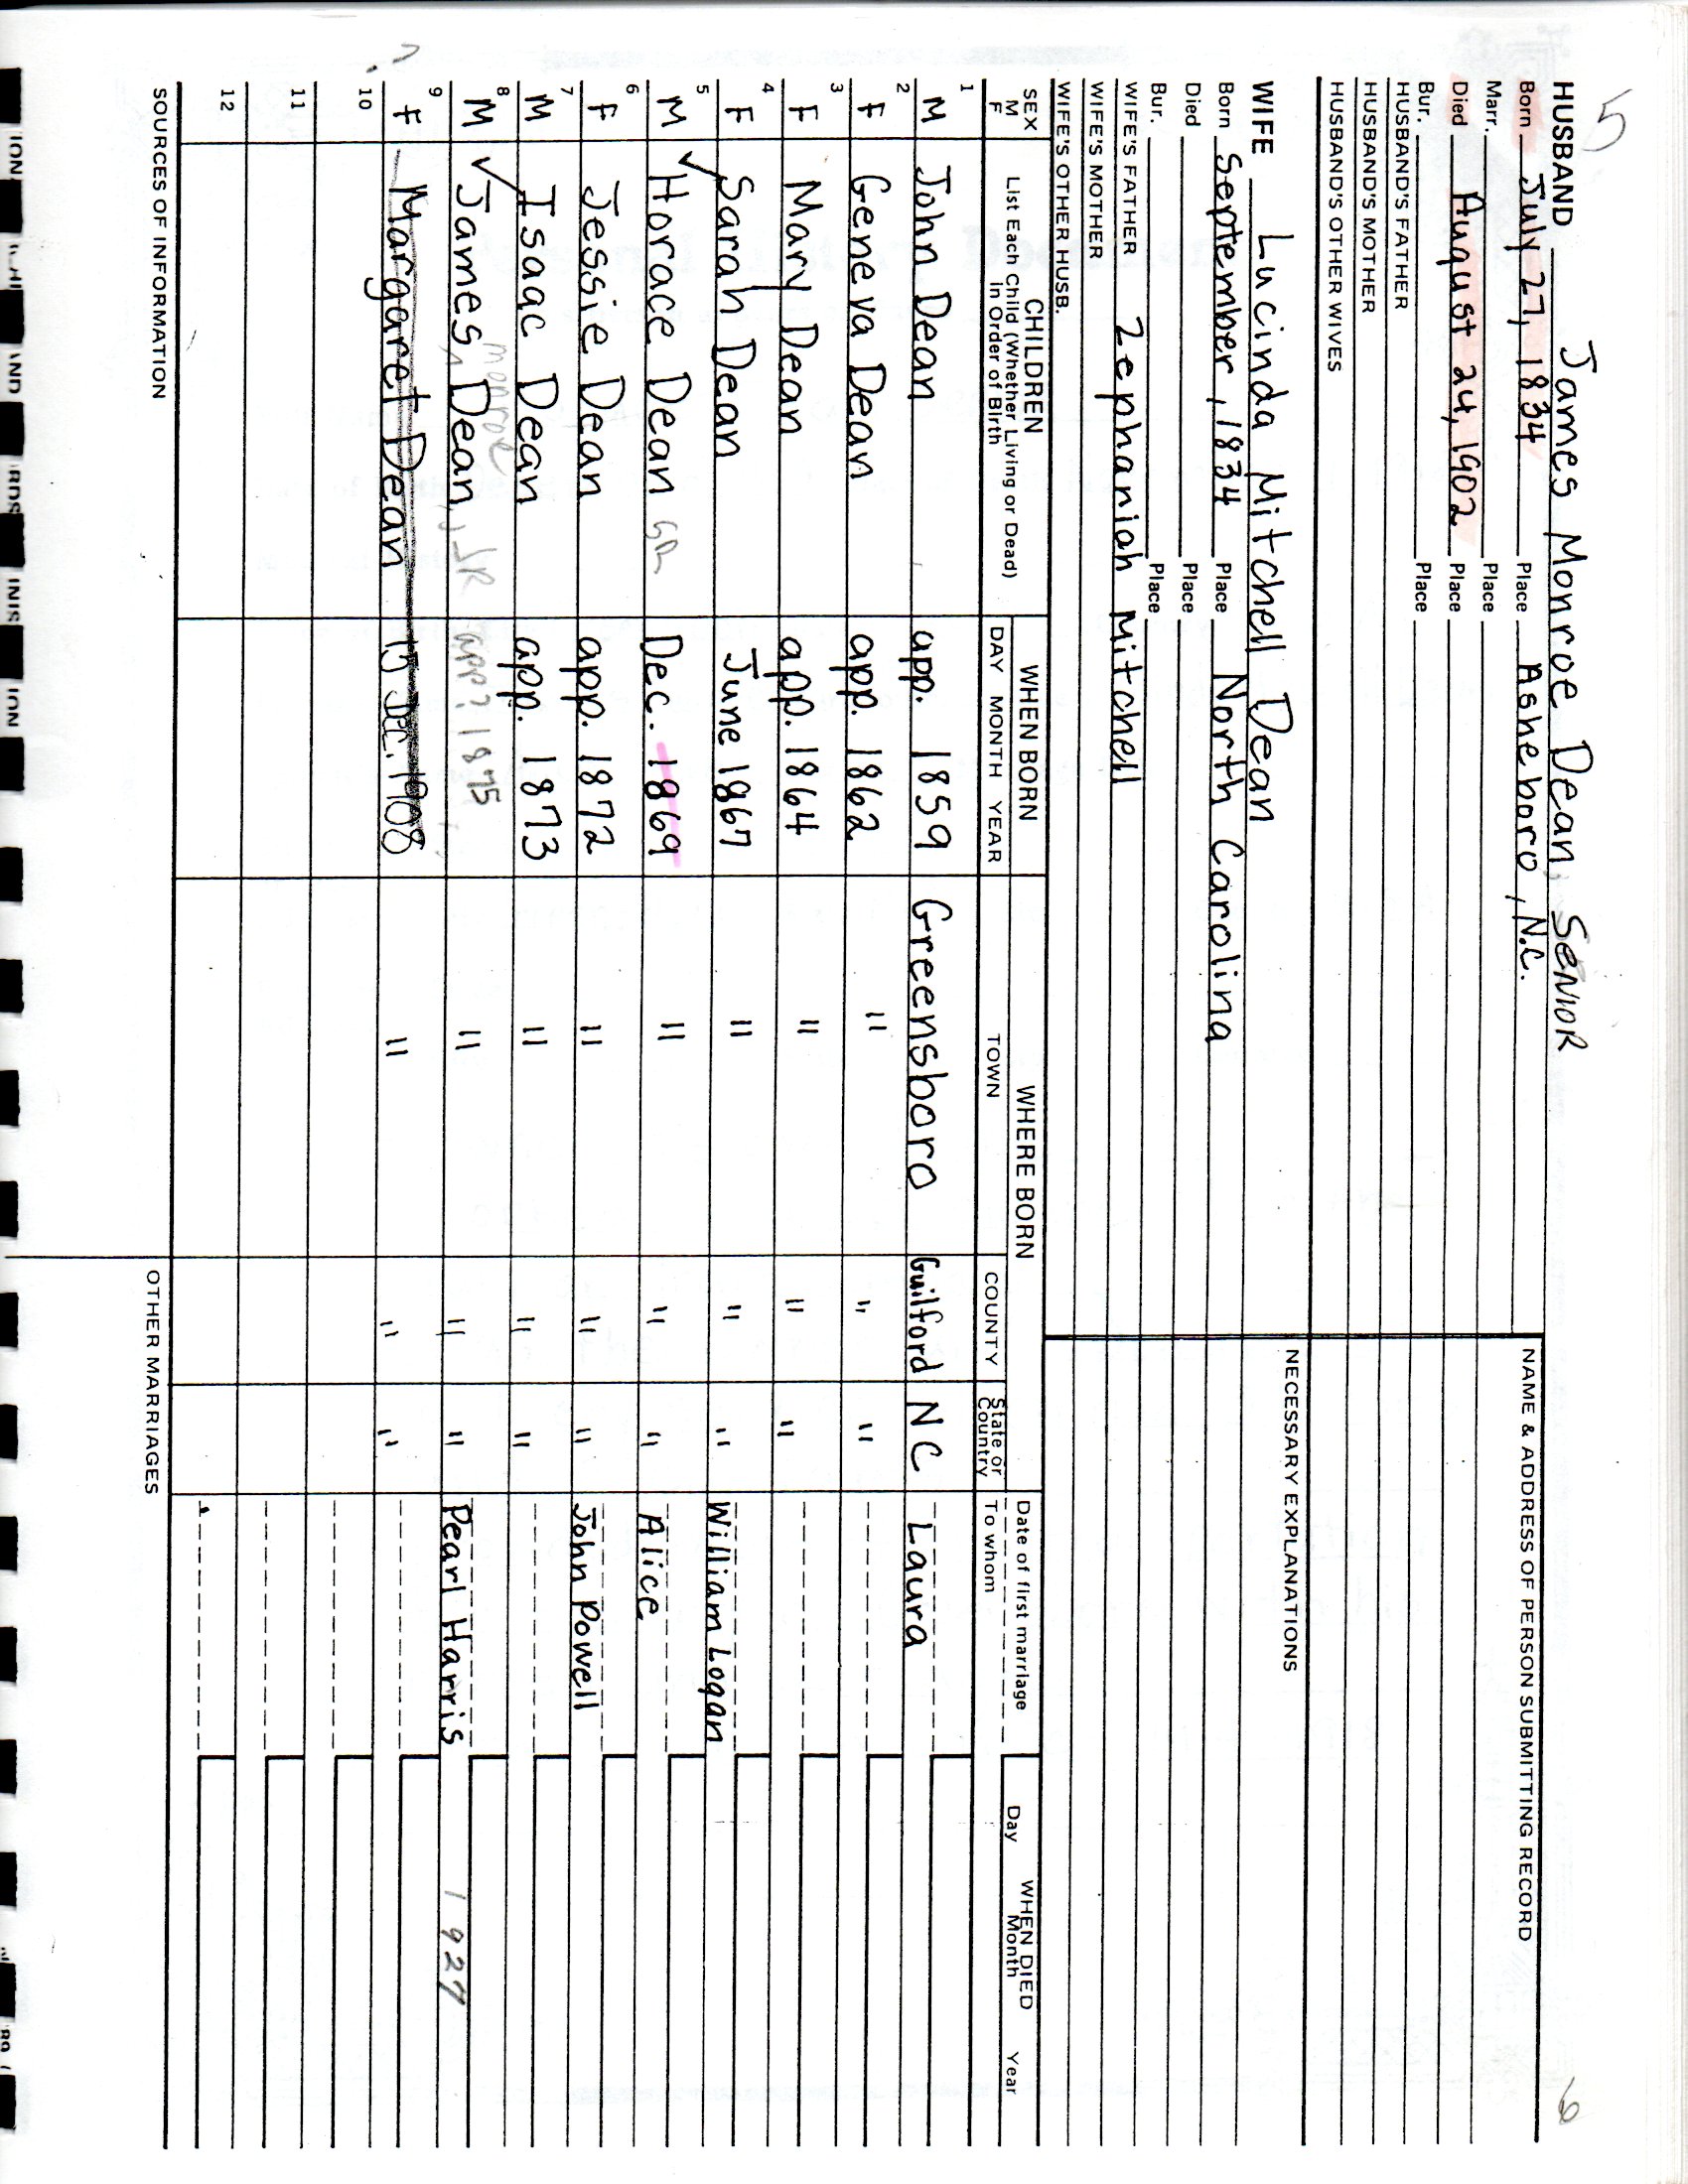 5
6
HUSBAND James Monroe Dean, SENIOR
Born July 27, 1834 Place Asheboro, N.C.
Marr. Place
Died August 24, 1902 Place
Bur. Place
HUSBAND'S FATHER
HUSBAND'S MOTHER
HUSBAND'S OTHER WIVES
NAME & ADDRESS OF PERSON SUBMITTING RECORD
WIFE Lucinda Mitchell Dean
Born September, 1834 Place North Carolina
Died Place
Bur. Place
WIFE'S FATHER Zephaniah Mitchell
WIFE'S MOTHER
WIFE'S OTHER HUSB.
NECESSARY EXPLANATIONS
SEX M F
CHILDREN
List Each Child (Whether Living or Dead) In Order of Birth
WHEN BORN
DAY MONTH YEAR
WHERE BORN
TOWN COUNTY State or Country
Date of first marriage
To whom
WHEN DIED
Day Month Year
1 M John Dean app. 1859 Greensboro Guilford NC Laura
2 F Geneva Dean app. 1862 " " "
3 F Mary Dean app. 1864 " " "
4 F Sarah Dean June 1867 " " " William Logan
5 M ✓ Horace Dean SR Dec. 1869 " " " Alice
6 F Jessie Dean app. 1872 " " " John Powell
7 M Isaac Dean app. 1873 " " "
8 M ✓ James Monroe Dean, JR app? 1875 " " " Pearl Harris 1927
? 9 F Margaret Dean 13 Dec. 1908 " " "
10
11
12
SOURCES OF INFORMATION
OTHER MARRIAGES